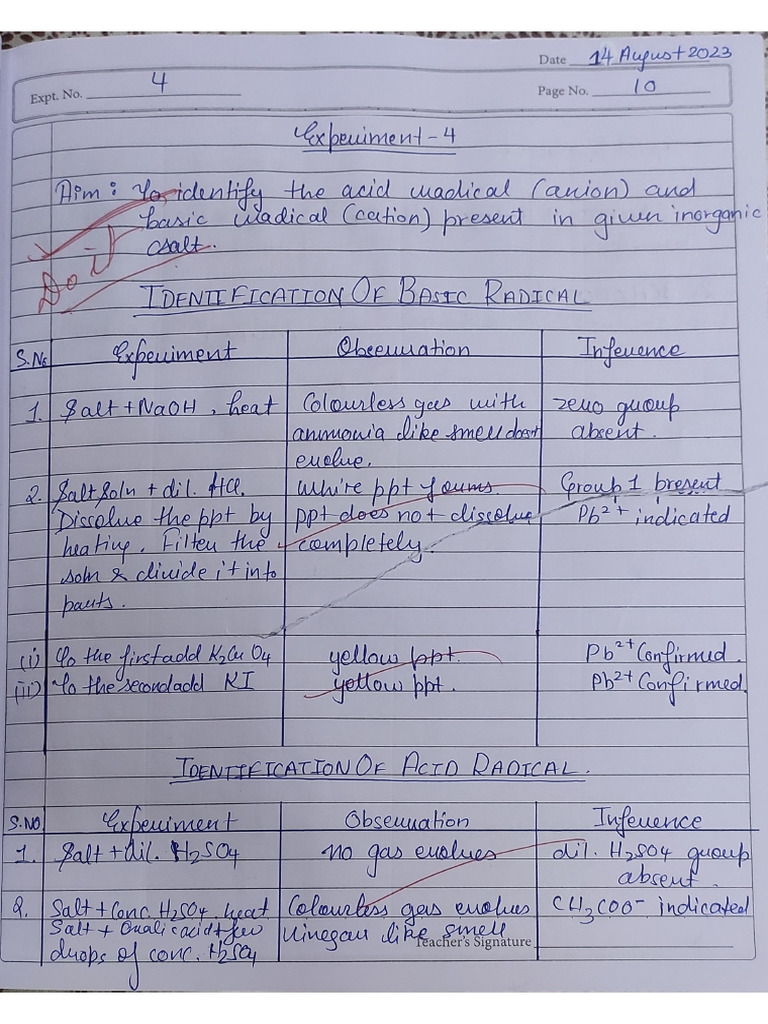 Date 14 August 2023
Expt. No. 4
Page No. 10
Experiment-4
Aim: To identify the acid radical (anion) and
basic radical (cation) present in given inorganic
salt.
Do it
IDENTIFICATION OF BASIC RADICAL
S.No Experiment Observation Inference
1. Salt + NaOH, heat Colourless gas with zero group
ammonia like smell doesn't absent.
evolve.
2. Salt soln + dil. HCl. White ppt forms. Group 1 present
Dissolve the ppt by ppt does not dissolve Pb²⁺ indicated
heating. Filter the completely.
soln & divide it into
parts.
(i) To the first add K₂CrO₄ yellow ppt. Pb²⁺ Confirmed.
(ii) To the second add KI yellow ppt. Pb²⁺ Confirmed.
IDENTIFICATION OF ACID RADICAL.
S.NO Experiment Observation Inference
1. Salt + dil. H₂SO₄ no gas evolves dil. H₂SO₄ group
absent.
2. Salt + Conc. H₂SO₄, heat Colourless gas evolves CH₃COO⁻ indicated
Salt + Oxalic acid + few vinegar like smell
drops of conc. H₂SO₄
Teacher's Signature